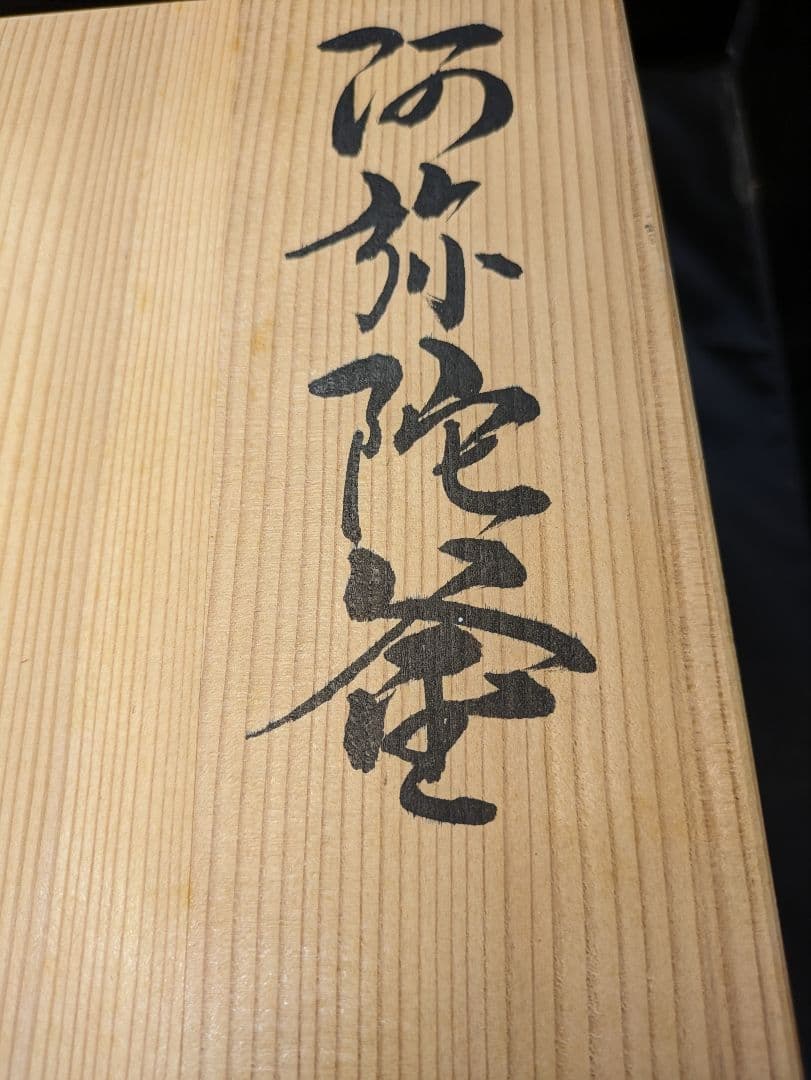 阿弥陀釜